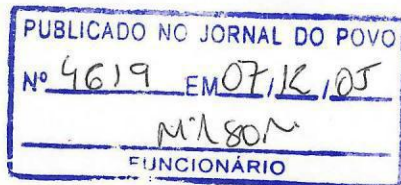 PUBLICADO NO JORNAL DO POVO
Nº 4619 EM 07/12/05
Nilson
FUNCIONÁRIO